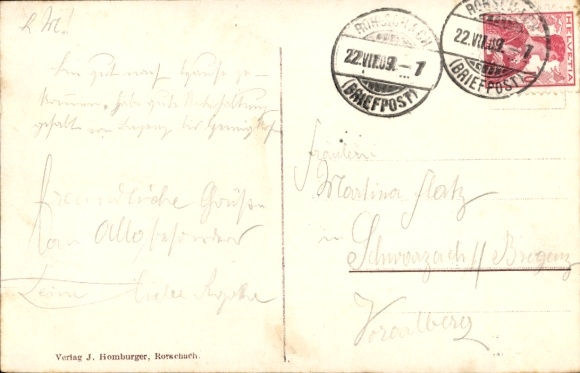 L. M.!
Bin gut nach Hause ge-
kommen, habe gute Unterhaltung
gehabt von Bregenz bis
Freundliche Grüße
an Alle besonders
RORSCHACH
22.VII.09.-7
(BRIEFPOST)
RORSCHACH
22.VII.09.-7
(BRIEFPOST)
HELVETIA
Fräulein
Martina Flatz
in
Schwarzach // Bregenz
Vorarlberg
Verlag J. Homburger, Rorschach.